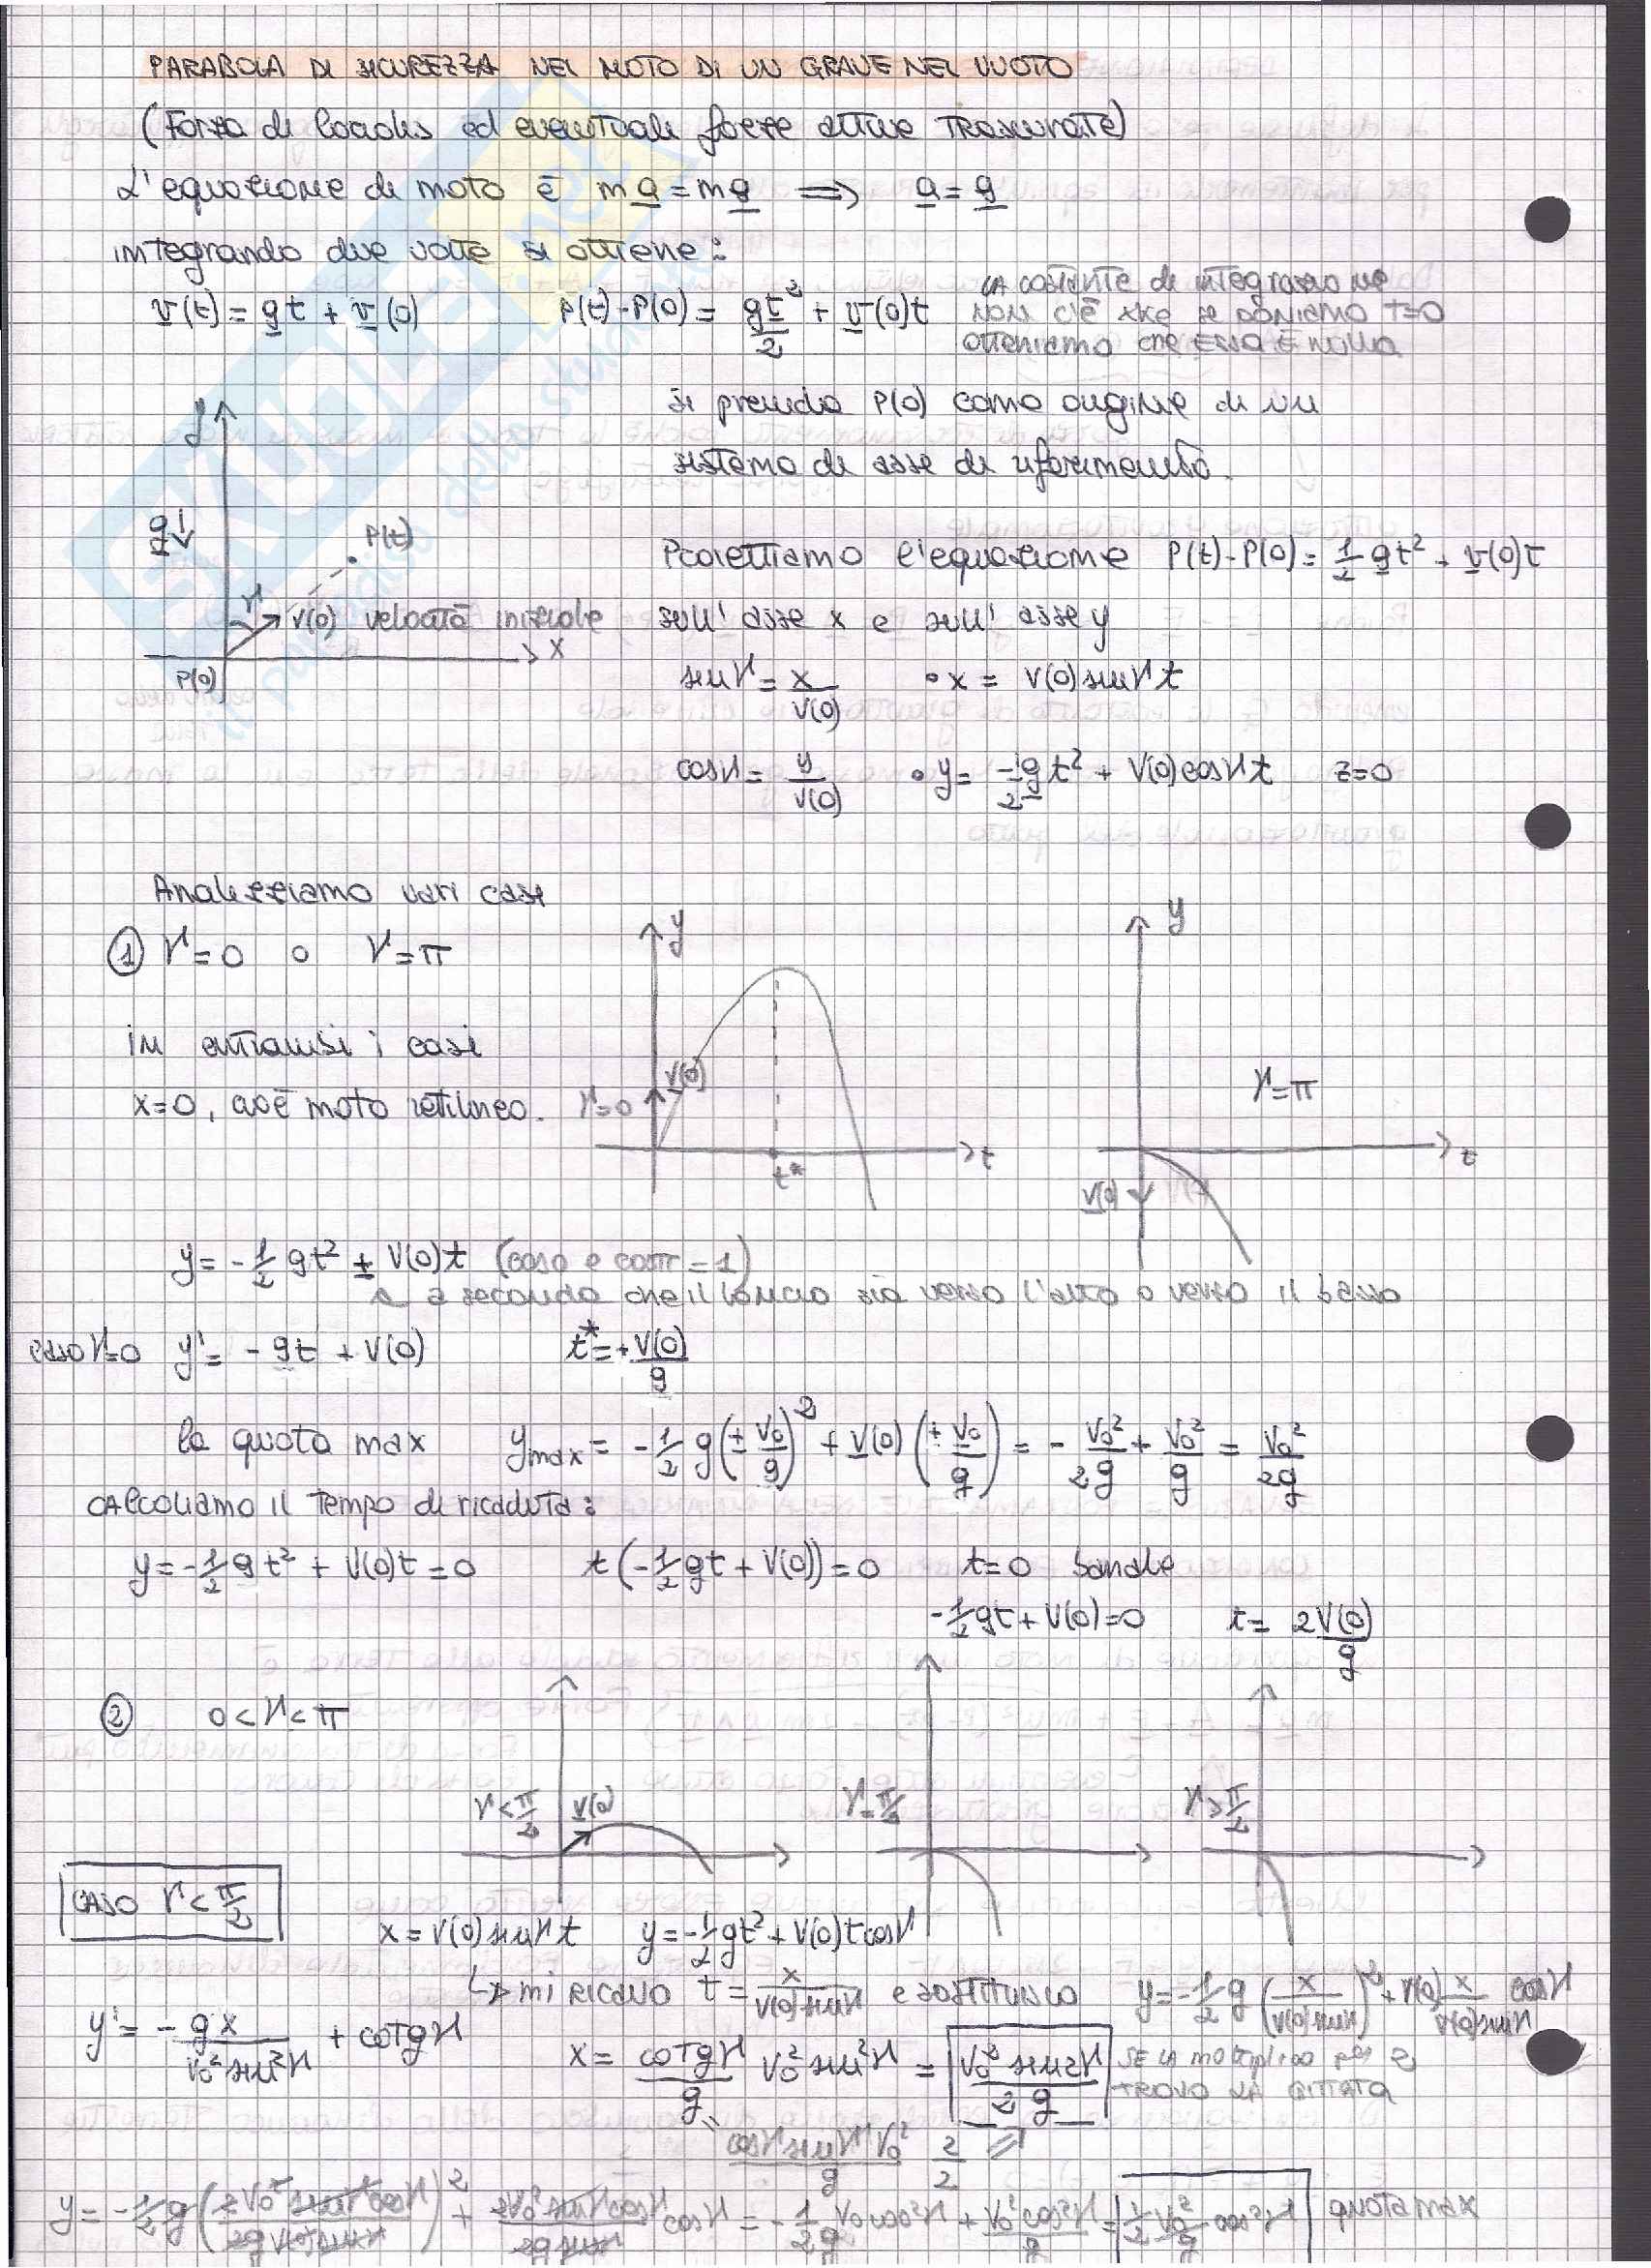 PARABOLA DI SICUREZZA NEL MOTO DI UN GRAVE NEL VUOTO
(Forza di Coriolis ed eventuali forze attive TRASCURATE)
L'equazione di moto è m a = m g ⟹ a = g
integrando due volte si ottiene:
v(t) = g t + v(0) P(t)-P(0) = gt²/2 + v(0)t
LA costante di integrazione
non c'è xkè se poniamo t=0
otteniamo che ESSA È nulla
si prenda P(0) come origine di un
sistema di asse di riferimento.
y
g↓
P(t)
γ v(0) velocità iniziale
x
P(0)
Proiettiamo l'equazione P(t)-P(0) = 1/2 gt² + v(0)t
sull'asse x e sull'asse y
senγ = x/v(0) • x = v(0)senγ t
cosγ = y/v(0) • y = -1/2 g t² + v(0)cosγ t z=0
Analizziamo vari casi
① γ=0 o γ=π
in entrambi i casi
x=0, cioè moto rettilineo.
y
v(0)
γ=0
t
t*
y
γ=π
t
v(0)
y = -1/2 gt² ± v(0)t (cos0 e cosπ = 1)
a seconda che il lancio sia verso l'alto o verso il basso
caso γ=0 y' = -gt + v(0) t* = +v(0)/g
la quota max ymax = -1/2 g(± v₀/g)² + v(0)(± v₀/g) = - v₀²/2g + v₀²/g = v₀²/2g
CALCOLIAMO il tempo di ricaduta:
y = -1/2 g t² + v(0)t = 0 t(-1/2 gt + v(0)) = 0 t=0 banale
-1/2 gt + v(0) = 0 t = 2v(0)/g
② 0<γ<π
γ<π/2 v(0)
γ=π/2
γ>π/2
CASO γ<π/2
x = v(0)senγ t y = -1/2 gt² + v(0)t cosγ
↳ mi ricavo t = x/v(0)senγ e sostituisco y = -1/2 g (x/v(0)senγ)² + v(0) x/v(0)senγ cosγ
y' = - gx/v₀²sen²γ + cotgγ
x = cotgγ/g v₀²sen²γ = v₀²sen2γ/2g SE LA moltiplico per 2
TROVO LA GITTATA
cosγ senγ v₀²/g 2/2
y = -1/2 g (2v₀² sen²γ cosγ/2g v(0)senγ)² + 2v₀²senγcosγ/2g senγ cosγ = -1/2g v₀cos²γ + v₀²cos²γ/g = 1/2 v₀²/g cos²γ quota max